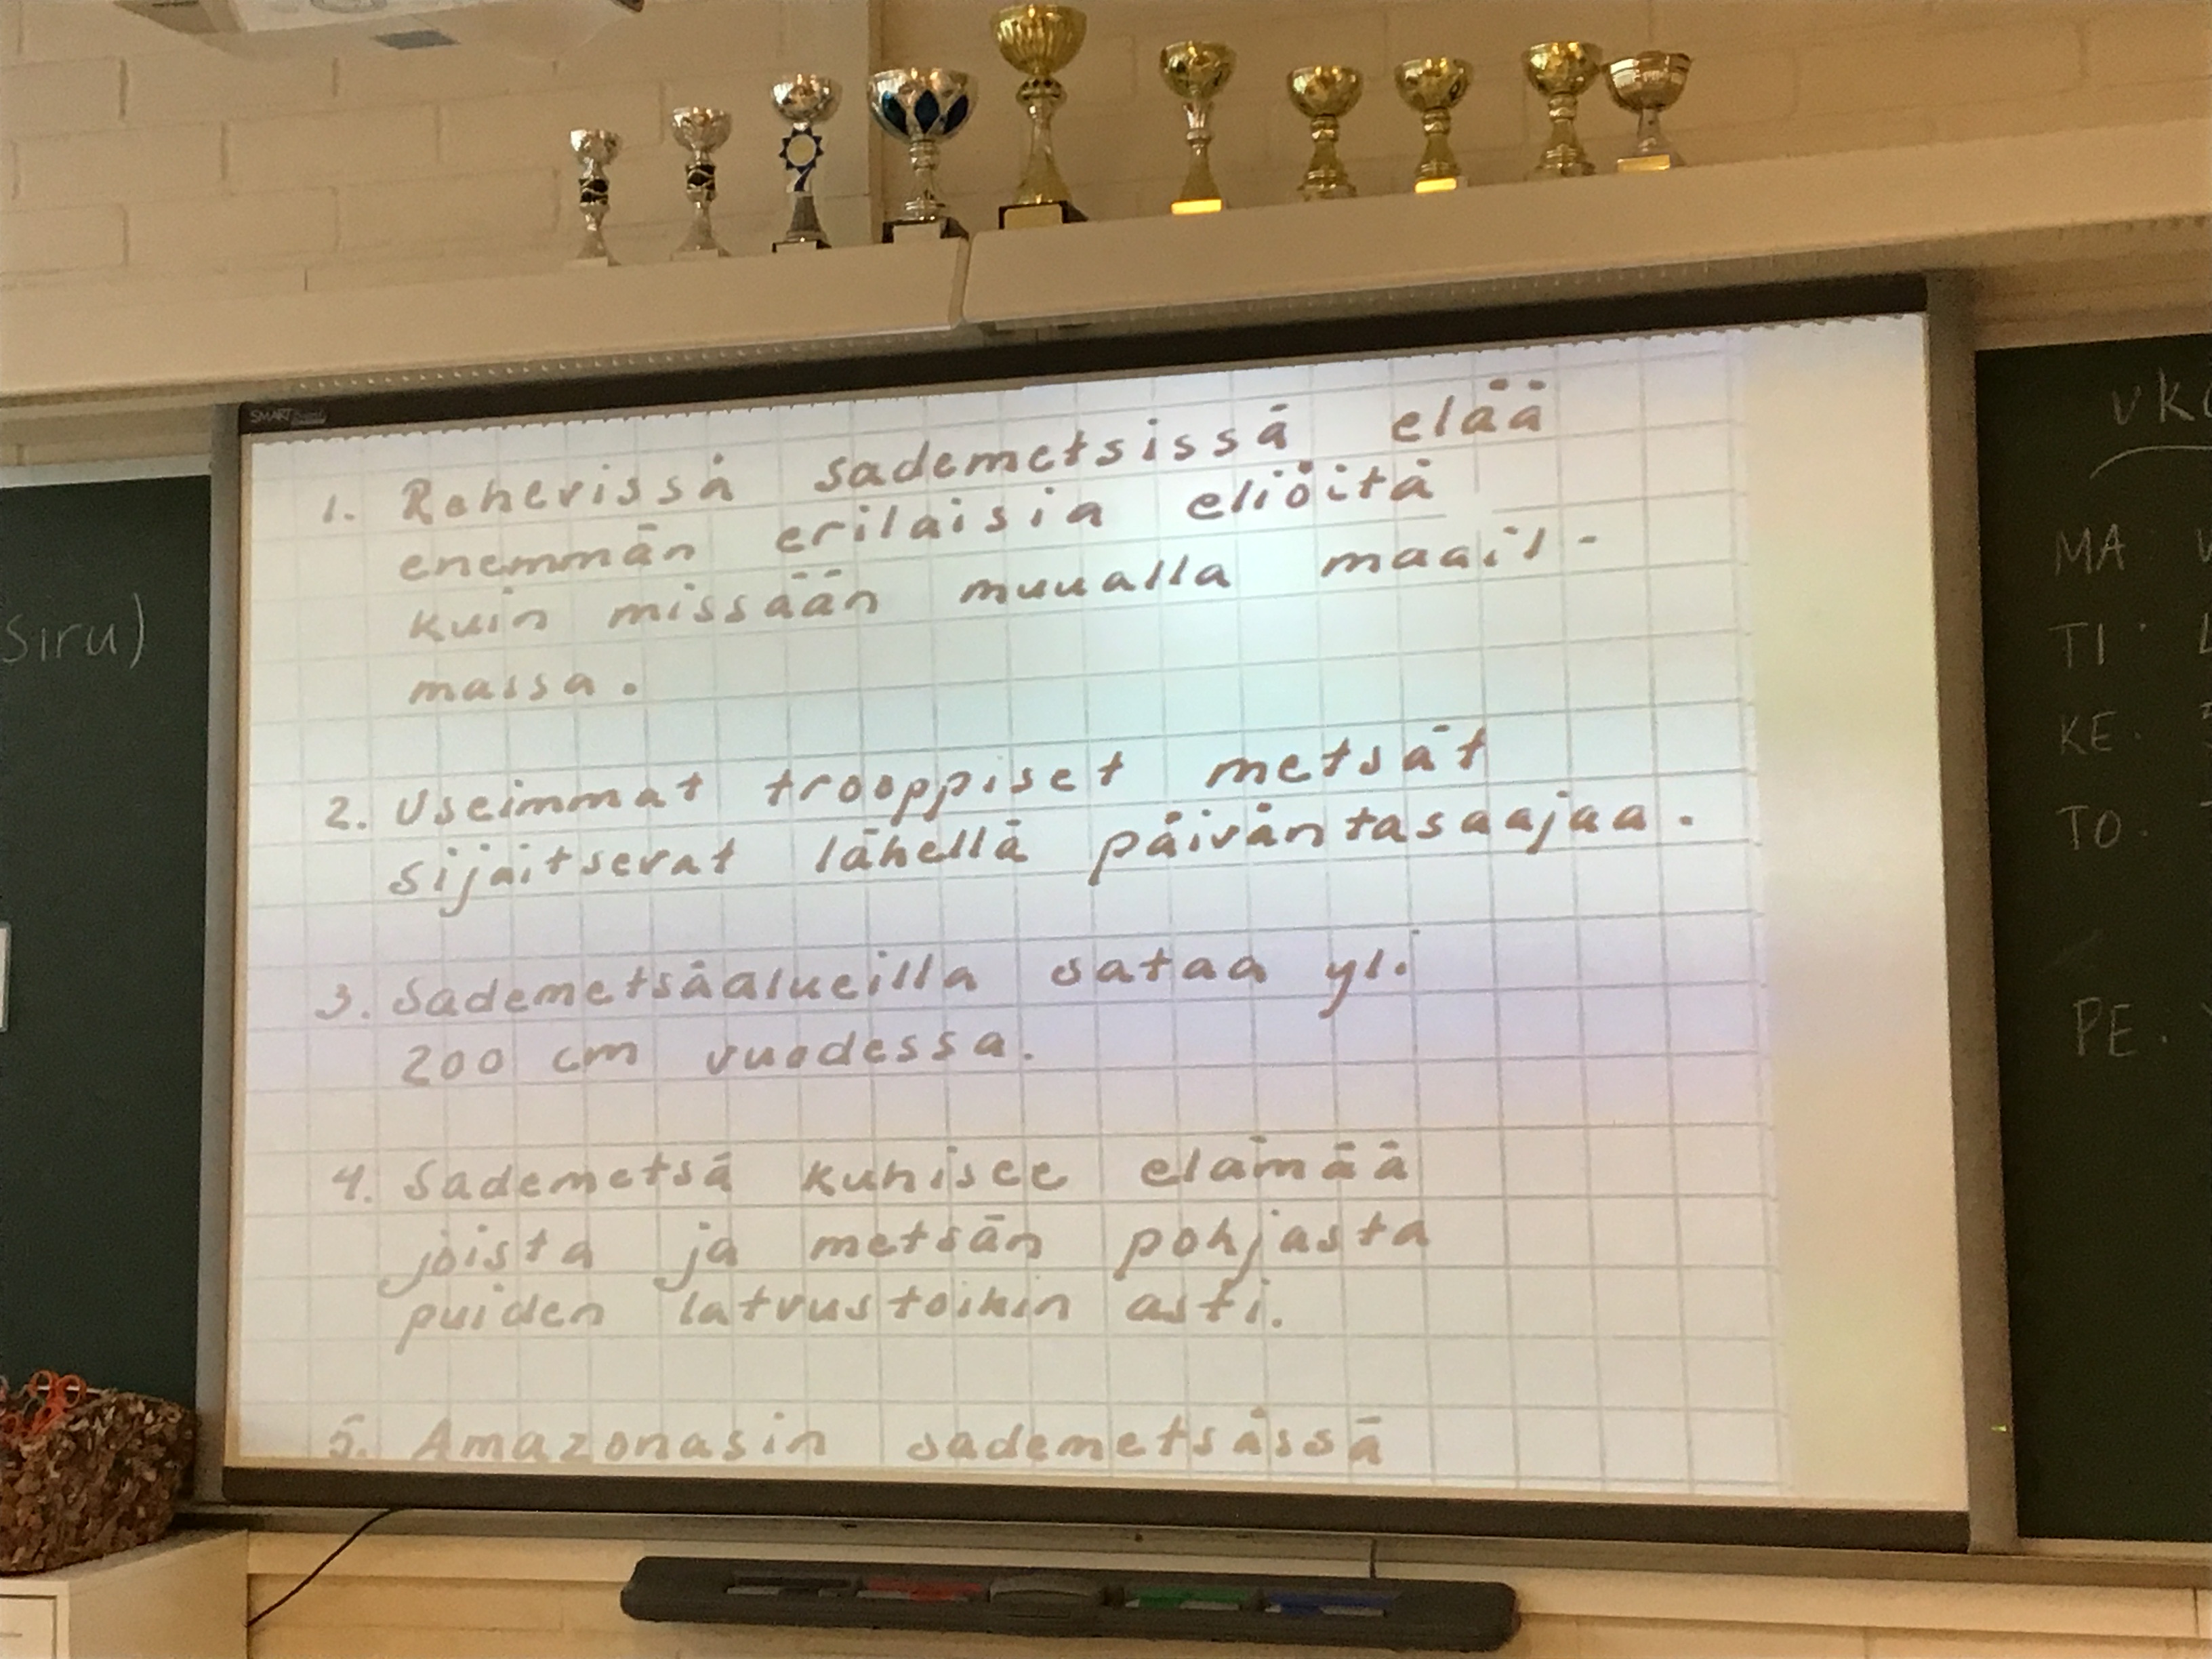 SMART Board
1. Rehevissä sademetsissä elää
enemmän erilaisia eliöitä
kuin missään muualla maail-
massa.
2. Useimmat trooppiset metsät
sijaitsevat lähellä päiväntasaajaa.
3. Sademetsäalueilla sataa yli
200 cm vuodessa.
4. Sademetsä kuhisee elämää
joista ja metsän pohjasta
puiden latvustoihin asti.
5. Amazonasin sademetsässä
siru)
vko
MA
TI
KE.
TO.
PE.